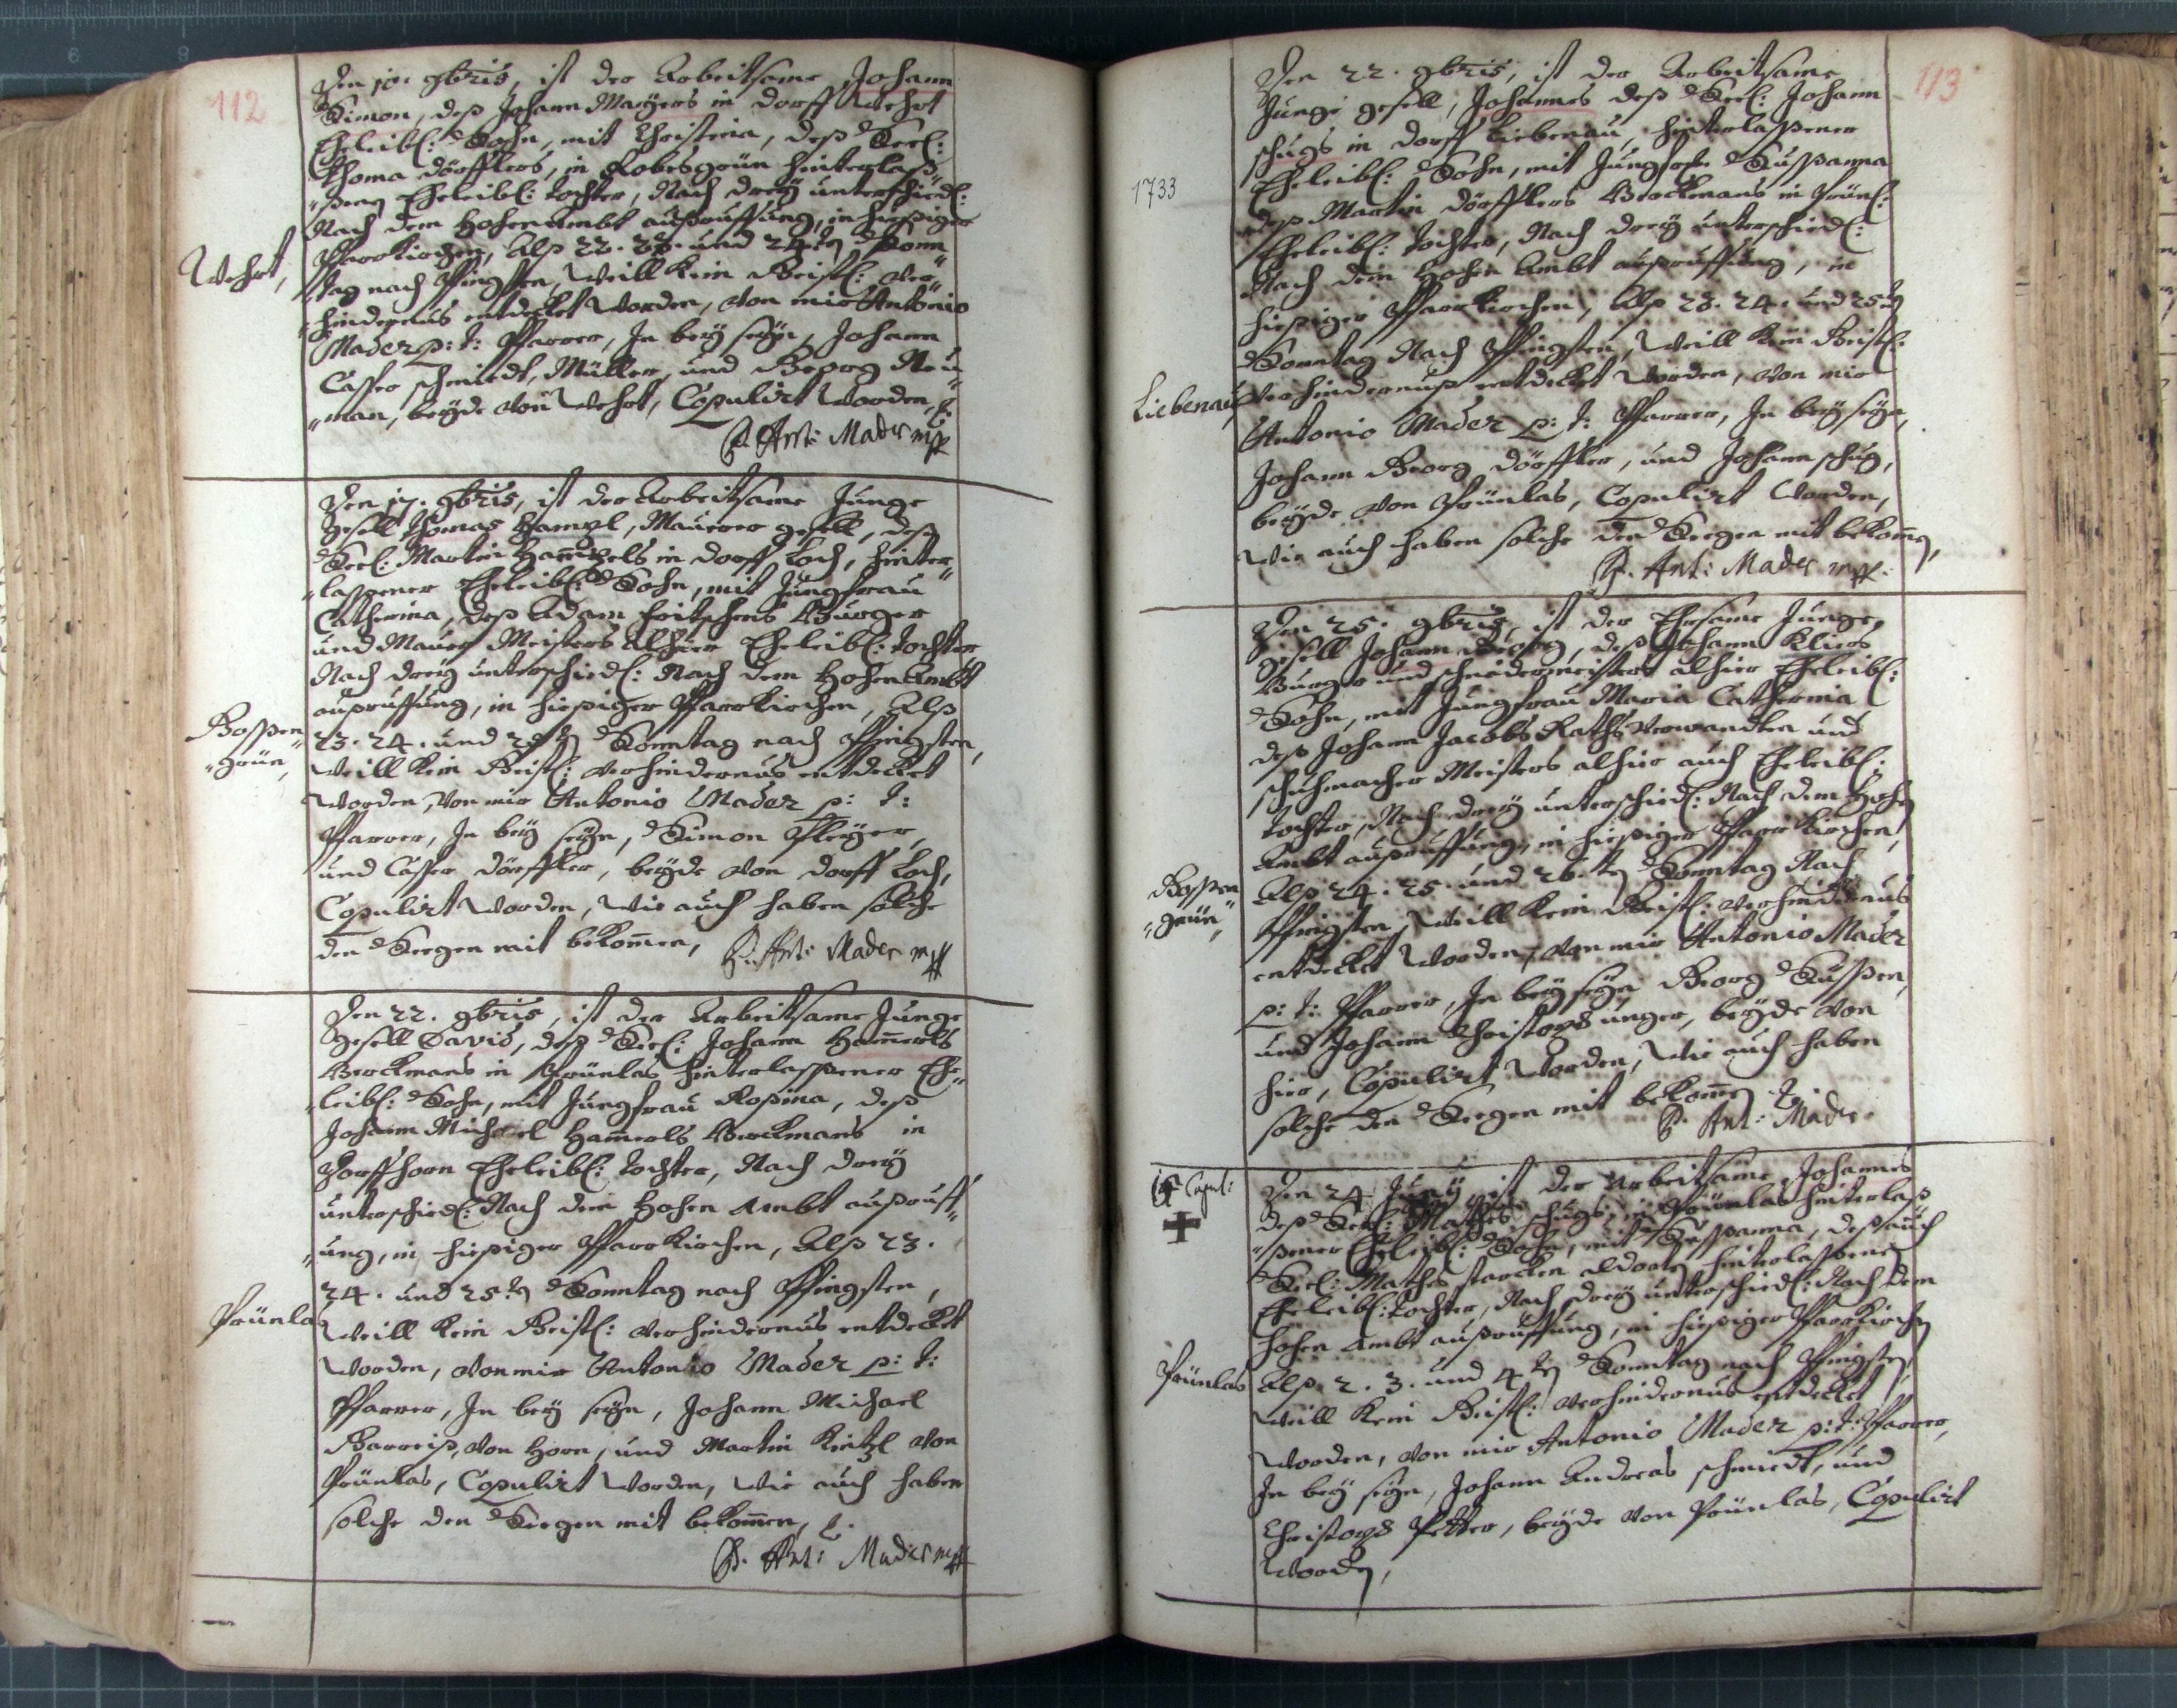 112
Den 10. 9bris, ist der Arbeitsame Johann
Simon, deß Johann Maÿers in dorff Wehrt
Eheleibl: Sohn, mit Christina, deß Seel:
Thoma dörfflers, in Robesgrün hinterlaß„
„ßeng Eheleibl: tochter, Nach dreÿ unterschiedl:
Nach dem Hohen Ambt außruffung, in hießiger
Pfarrkirchen, Alß 22. 23. und 24.tg Sonn„
„tag nach Pfingsten, Weill Kein Geistl: Ver„
„hindernus entdecket Worden, Von mir Antonio
Mader p: t: Pfarrer, In beÿ seÿn, Johann
Casper schmiedt, Müller, und Georg Neu„
„man, beÿde Von Wehrt, Copulirt Worden,
P. Ant: Mader mp
Wehrt,
Den 17. 9bris, ist der Arbeitsame Junge
gesell Thomas Hampl, Maurer gesell, deß
Seel: Martin Ham̄pels in dorff Loch, hinter„
„lassener Eheleibl: Sohn, mit Jungfrau
Catherina, deß Adam fritschens Burger
und Maurer Meisters alhier Eheleibl: tochter
Nach dreÿ unterschiedl: Nach dem Hohen Ambt
außruffung, in hießiger Pfarrkirchen, Alß
23. 24. und 25tg Sonntag nach Pfingsten,
Weill Kein Geistl: Verhindernus entdecket
Worden, Von mir Antonio Mader p: t:
Pfarrer, In beÿ seÿn, Simon Pleÿer,
und Casper dörffler, beÿde Von dorff Loch,
Copulirt Worden, Wie auch haben solche
den Seegen mit bekom̄en,
P. Ant: Mader mp
Gossen„
„grün,
Den 22. 9bris, ist der Arbeitsame Junge
gesell David, deß Seel: Johann Ham̄erls
Berckmans in Prünlas hinterlassener Ehe„
„leibl: Sohn, mit Jungfrau Rosina, deß
Johann Michael Ham̄erls Berckmans in
Dorff horn Eheleibl: tochter, Nach dreÿ
unterschiedl: Nach dem Hohen Ambt außruff„
„ung, in hießiger Pfarrkirchen, Alß 23.
24. und 25tg Sonntag nach Pfingsten,
Weill Kein Geistl: Verhindernus entdecket
Worden, Von mir Antonio Mader p: t:
Pfarrer, In beÿ seÿn, Johann Michael
Von Horn, und Martin Von
Prünlas, Copulirt Worden, Wie auch haben
solche den Seegen mit bekom̄en,
P. Ant: Mader mp
Prünlas
113
1733
Den 22. 9bris, ist der Arbeitsame
Junge gesell, Johannes deß Seel: Johann
schugs in dorff Liebenau, hinterlassener
Eheleibl: Sohn, mit Jungfrau Sussanna
deß Martin dörfflers Berckmans in Prünl:
Eheleibl: tochter, Nach dreÿ unterschiedl:
Nach dem Hohen Ambt außruffung, in
hießiger Pfarrkirchen, Alß 23. 24. und 25tg
Sonntag Nach Pfingsten, Weill Kein Geistl:
Verhindernuß entdecket Worden, Von mir
Antonio Mader p: t: Pfarrer, In beÿ seÿn,
Johann Georg dörffler, und Johann schug,
beÿde Von Prünlas, Copulirt Worden,
Wie auch haben solche den Seegen mit bekom̄g,
P. Ant: Mader mp.
Liebenau,
Den 25. 9bris, ist der Ehrsame Junge
gesell Johann Georg, deß Johann Kliers
Burger und schneidermeisters alhier Eheleibl:
Sohn, mit Jungfrau Maria Catherina
deß Johann Jacobs Raths Verwandten und
schuhmacher Meisters alhier auch Eheleibl:
tochter, Nach dreÿ unterschiedl: Nach dem Hohen
Ambt außruffung, in hießiger Pfarrkirchen,
Alß 24. 25. und 26.tg Sonntag Nach
Pfingsten, Weill Kein Geistl: Verhindernus
entdecket Worden, Von mir Antonio Mader
p: t: Pfarrer, In beÿ seÿn Georg Süssen,
und Johann Christoph unger, beÿde Von
hier, Copulirt Worden, Wie auch haben
solche den Seegen mit bekom̄g
P. Ant: Mader
Gossen„
„grün„
Copul:
Den 24 Junÿ, ist der Arbeitsame, Johannes
deß Seel: Mathes schugs, in Prünlas hinterlaß„
„ßener Eheleibl: Sohn, mit Sussanna, deß auch
Seel: Mathes starcken aldortg hinterlassenen
Eheleibl: tochter, Nach dreÿ unterschiedl: Nach dem
hohen Ambt außruffung, in hießiger Pfarrkirchg
Alß 2. 3. und 4tg Sonntag nach Pfingstg,
Weill Kein Geistl: Verhindernus entdecket
Worden, Von mir Antonio Mader p: t: Pfarrer,
In beÿ seÿn, Johann Andreas schmiedt, und
Christoph Petter, beÿde Von Prünlas, Copulirt
Wordg,
Prünlas